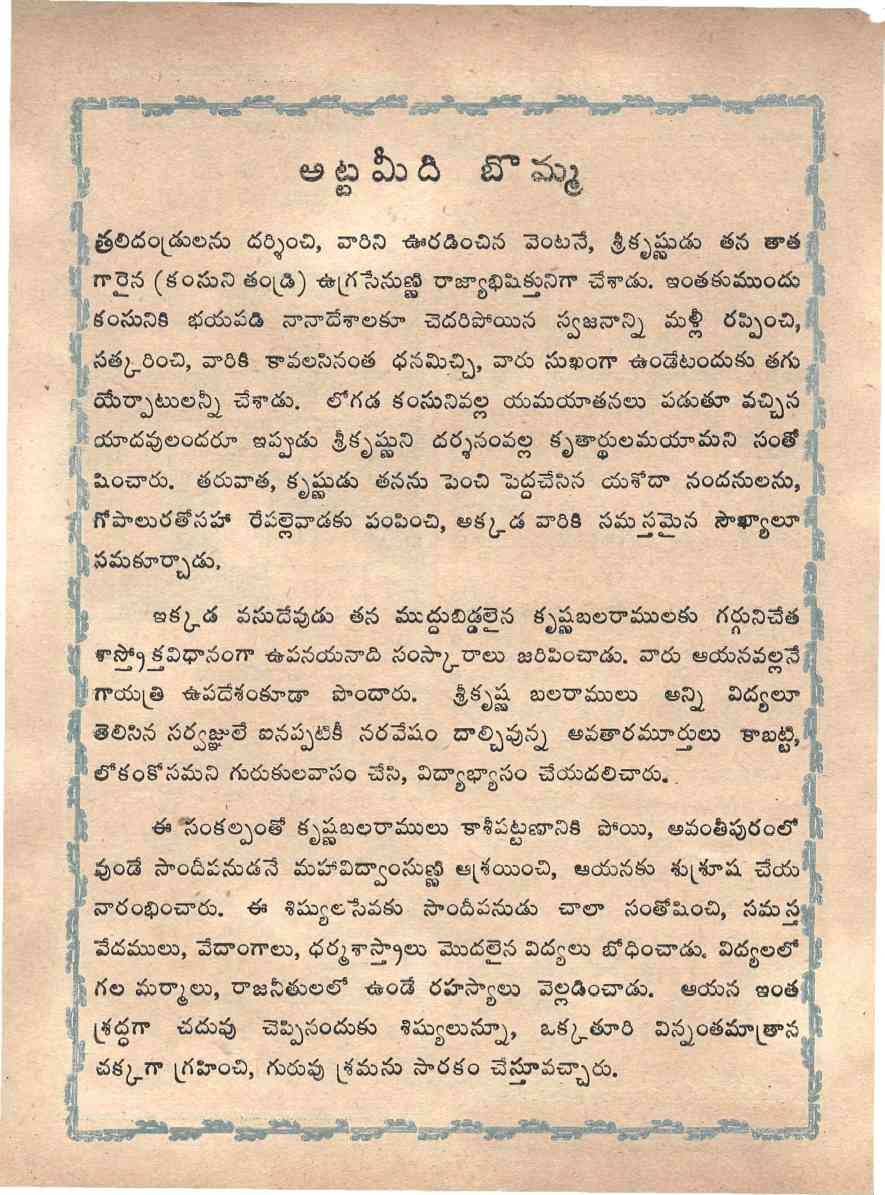 అట్టమీది బొమ్మ
తల్లిదండ్రులను దర్శించి, వారిని ఊరడించిన వెంటనే, శ్రీకృష్ణుడు తన తాత
గారైన (కంసుని తండ్రి) ఉగ్రసేనుణ్ణి రాజ్యాభిషిక్తునిగా చేశాడు. ఇంతకుముందు
కంసునికి భయపడి నానాదేశాలకూ చెదరిపోయిన స్వజనాన్ని మళ్లీ రప్పించి,
సత్కరించి, వారికి కావలసినంత ధనమిచ్చి, వారు సుఖంగా ఉండేటందుకు తగు
యేర్పాటులన్నీ చేశాడు. లోగడ కంసునివల్ల యమయాతనలు పడుతూ వచ్చిన
యాదవులందరూ ఇప్పుడు శ్రీకృష్ణుని దర్శనంవల్ల కృతార్థులమయామని సంతో
షించారు. తరువాత, కృష్ణుడు తనను పెంచి పెద్దచేసిన యశోదా నందనులను,
గోపాలురతోసహా రేపల్లెవాడకు పంపించి, అక్కడ వారికి సమస్తమైన సౌఖ్యాలూ
సమకూర్చాడు.
ఇక్కడ వసుదేవుడు తన ముద్దుబిడ్డలైన కృష్ణబలరాములకు గర్గునిచేత
శాస్త్రోక్తవిధానంగా ఉపనయనాది సంస్కారాలు జరిపించాడు. వారు ఆయనవల్లనే
గాయత్రి ఉపదేశంకూడా పొందారు. శ్రీకృష్ణ బలరాములు అన్ని విద్యలూ
తెలిసిన సర్వజ్ఞులే ఐనప్పటికీ నరవేషం దాల్చివున్న అవతారమూర్తులు కాబట్టి,
లోకంకోసమని గురుకులవాసం చేసి, విద్యాభ్యాసం చేయదలిచారు.
ఈ సంకల్పంతో కృష్ణబలరాములు కాశీపట్టణానికి పోయి, అవంతీపురంలో
వుండే సాందీపనుడనే మహావిద్వాంసుణ్ణి ఆశ్రయించి, ఆయనకు శుశ్రూష చేయ
నారంభించారు. ఈ శిష్యులసేవకు సాందీపనుడు చాలా సంతోషించి, సమస్త
వేదములు, వేదాంగాలు, ధర్మశాస్త్రాలు మొదలైన విద్యలు బోధించాడు. విద్యలలో
గల మర్మాలు, రాజనీతులలో ఉండే రహస్యాలు వెల్లడించాడు. ఆయన ఇంత
శ్రద్ధగా చదువు చెప్పినందుకు శిష్యులున్నూ, ఒక్కతూరి విన్నంతమాత్రాన
చక్కగా గ్రహించి, గురువు శ్రమను సారకం చేస్తూవచ్చారు.